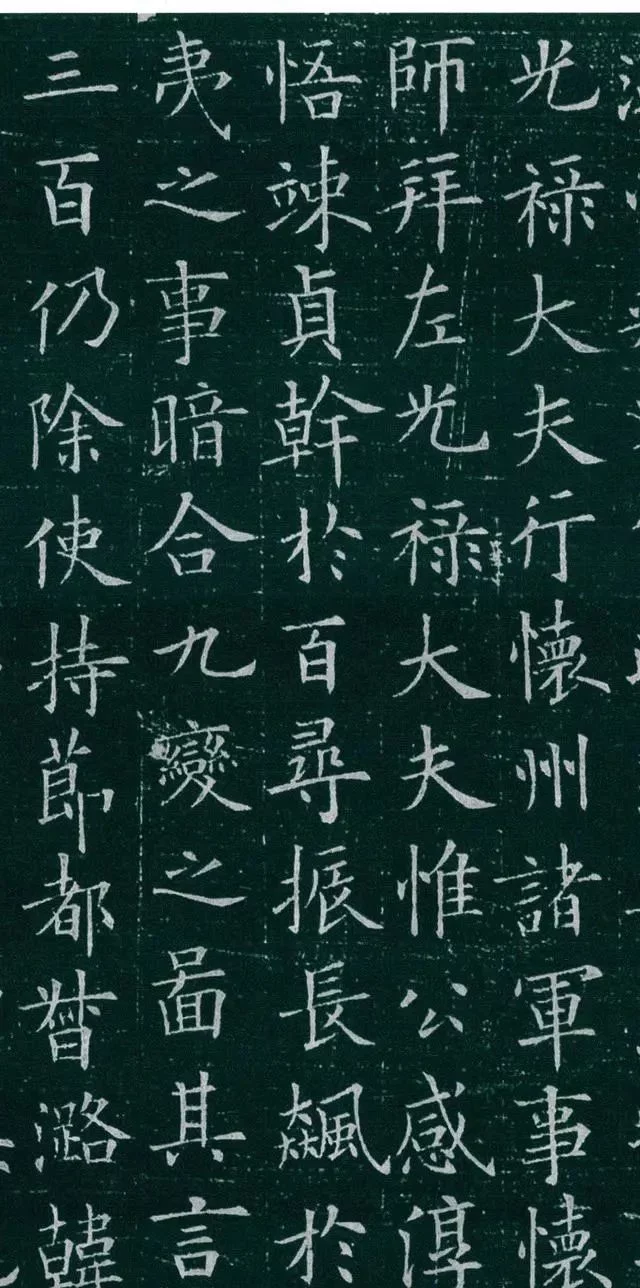 光祿大夫行懷州諸軍事懷
師拜左光祿大夫惟公感淳
悟竦貞幹於百尋振長飆於
夷之事暗合九變之啚其言
三百仍除使持莭都督潞韓